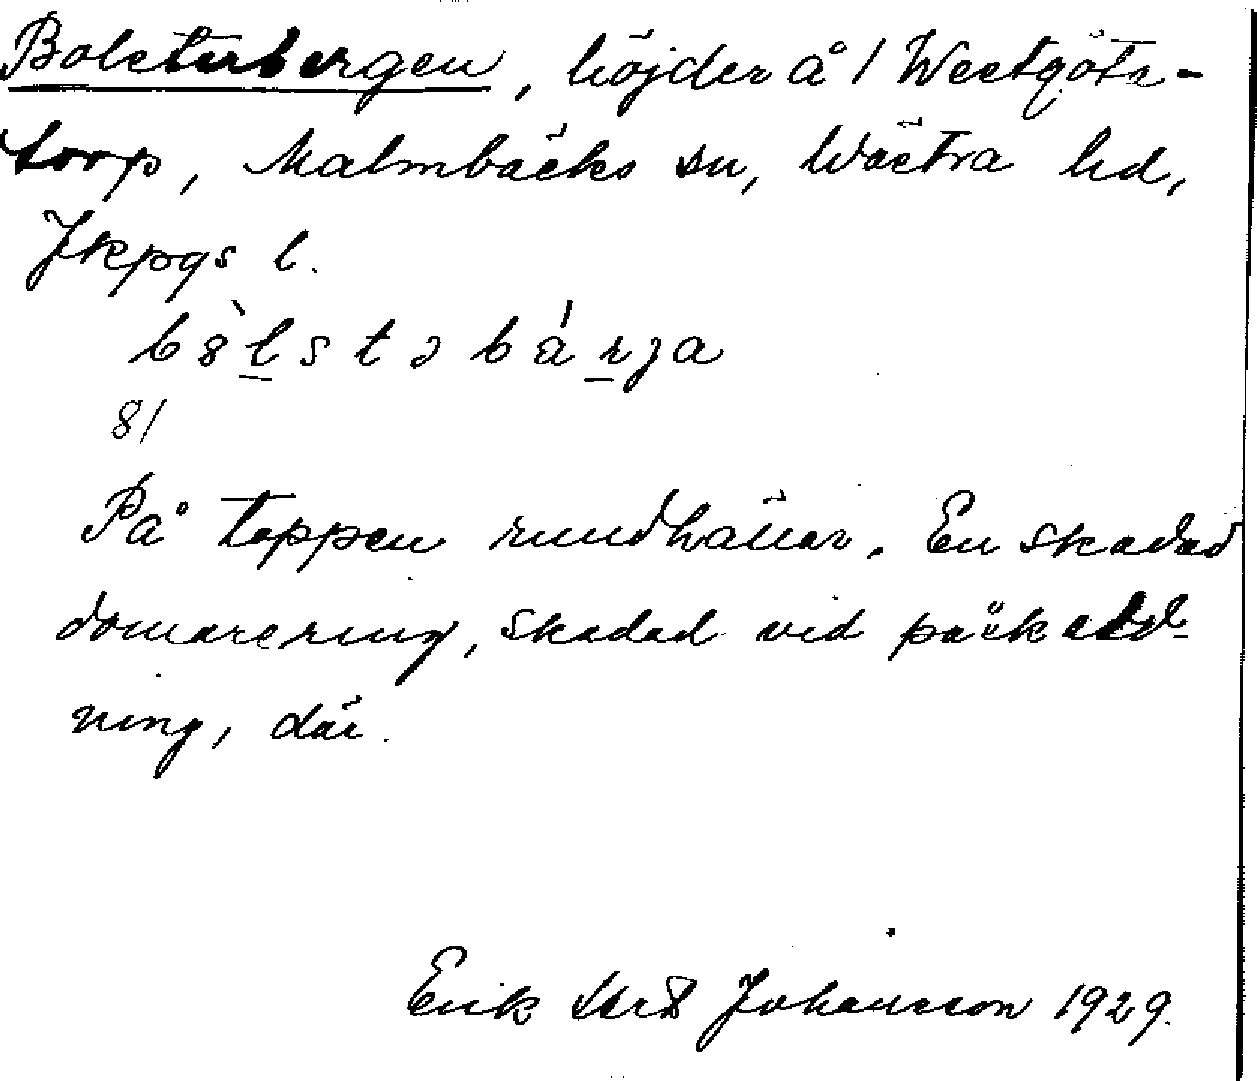 Bolsterbergen, höjder å 1 Westgöta-
torp, Malmbäcks sn, Wästra hd,
Jkpgs l.
bòlstəbá̈rja
81
På toppen rundhällar. En skadad
domarering, skadad vid
ning, där.
Erik Johansson 1929.